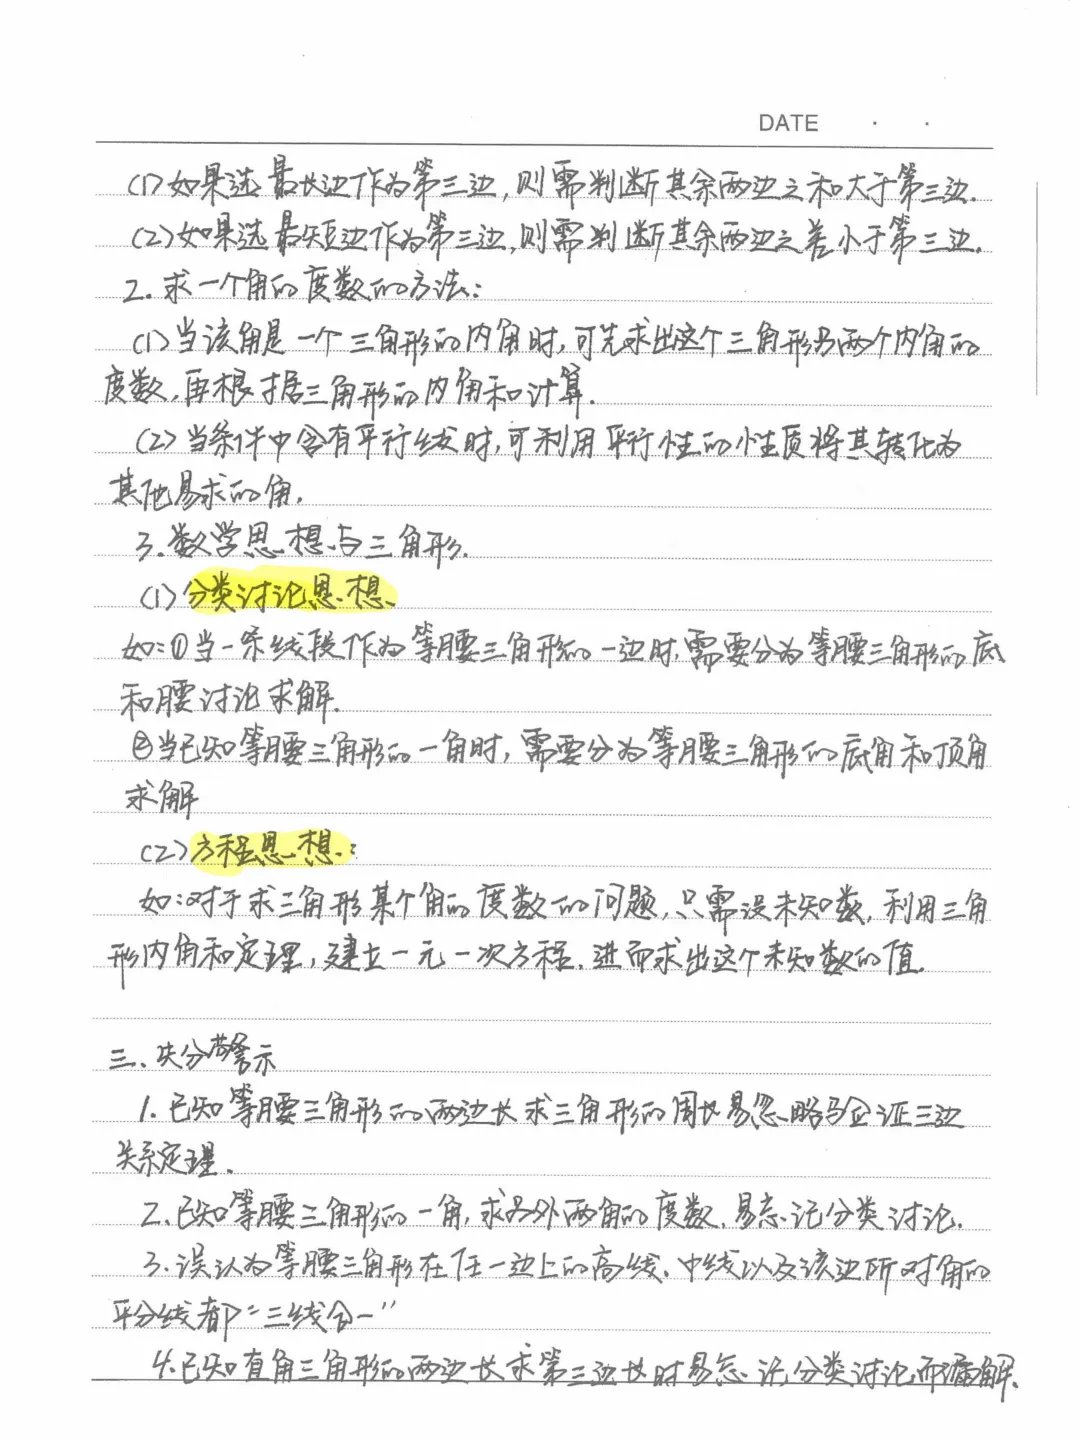 DATE
(1)如果选最长边作为第三边,则需判断其余两边之和大于第三边.
(2)如果选最短边作为第三边,则需判断其余两边之差小于第三边.
2.求一个角的度数的方法:
(1)当该角是一个三角形的内角时,可先求出这个三角形另两个内角的
度数,再根据三角形的内角和计算.
(2)当条件中含有平行线时,可利用平行性的性质将其转化为
其他易求的角.
3.数学思想与三角形.
(1)分类讨论思想
如:①当一条线段作为等腰三角形的一边时,需要分为等腰三角形的底
和腰讨论求解.
②当已知等腰三角形的一角时,需要分为等腰三角形的底角和顶角
求解
(2)方程思想:
如:对于求三角形某个角的度数的问题,只需设未知数,利用三角
形内角和定理,建立一元一次方程,进而求出这个未知数的值.
三、失分警示
1.已知等腰三角形的两边长求三角形的周长易忽略验证三边
关系定理.
2.已知等腰三角形的一角,求另外两角的度数,易忘记分类讨论.
3.误认为等腰三角形在任一边上的高线、中线以及该边所对角的
平分线都“三线合一”
4.已知直角三角形的两边长求第三边长时易忘记分类讨论而漏解.